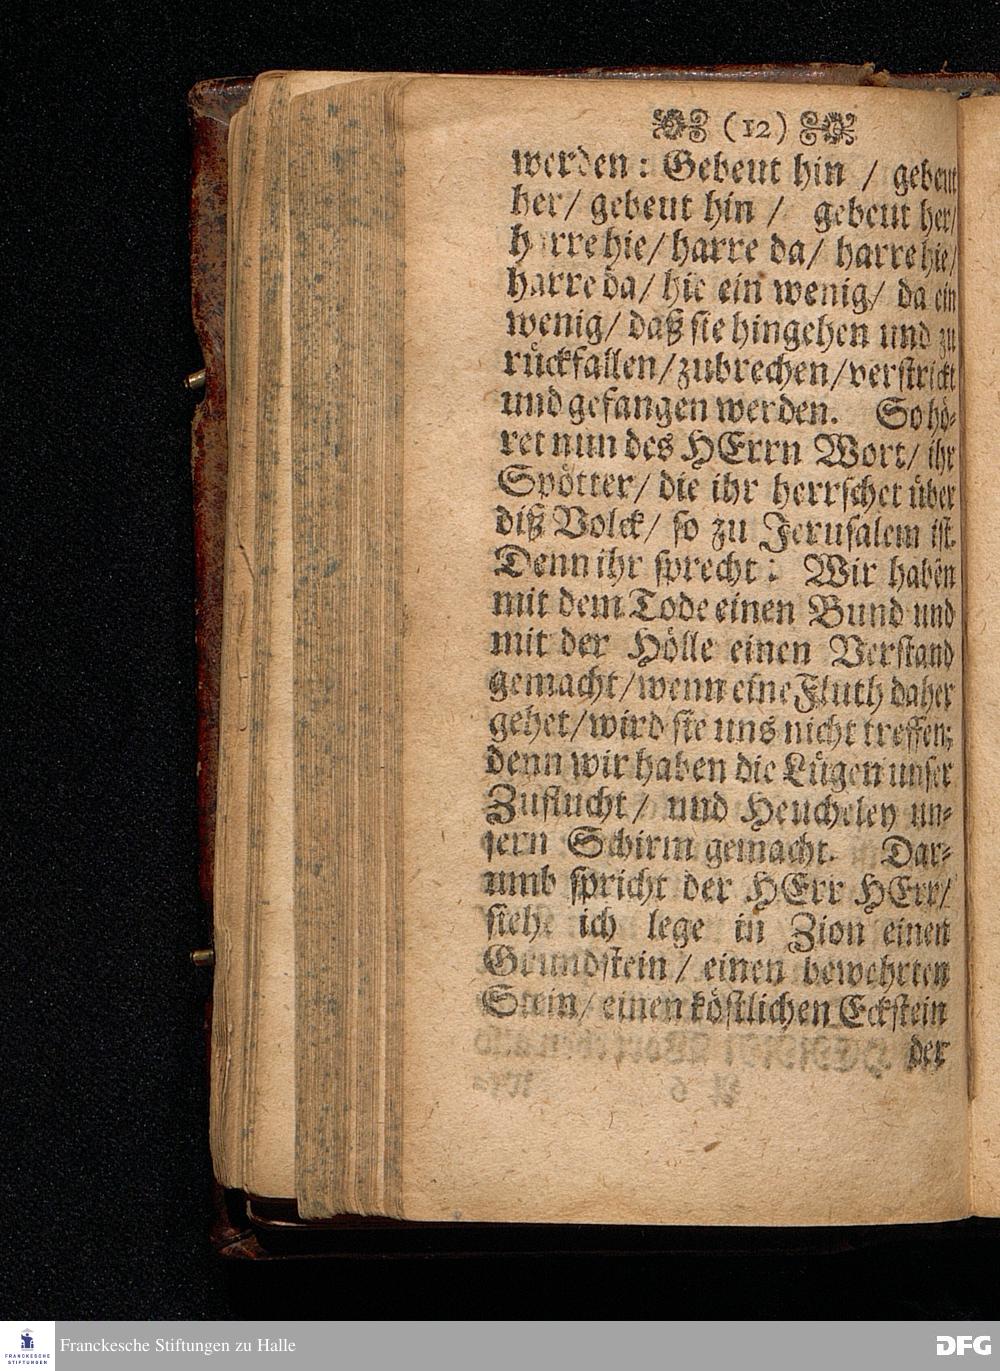 (12)
werden: Gebeut hin / gebeut
her/ gebeut hin / gebeut her/
harre hie/ harre da/ harre hie/
harre da/ hie ein wenig/ da ein
wenig/ daß sie hingehen und zu
rückfallen/ zubrechen/ verstrickt
und gefangen werden. So hö-
ret nun des HErrn Wort/ ihr
Spötter/ die ihr herrschet über
diß Volck/ so zu Jerusalem ist.
Denn ihr sprecht: Wir haben
mit dem Tode einen Bund und
mit der Hölle einen Verstand
gemacht/ wenn eine Fluth daher
gehet/ wird sie uns nicht treffen;
denn wir haben die Lügen unser
Zuflucht/ und Heucheley un-
sern Schirm gemacht. Dar-
umb spricht der HErr HErr/
siehe ich lege in Zion einen
Grundstein / einen bewehrten
Stein/ einen köstlichen Eckstein
der
FRANCKESCHE
STIFTUNGEN
Franckesche Stiftungen zu Halle
DFG